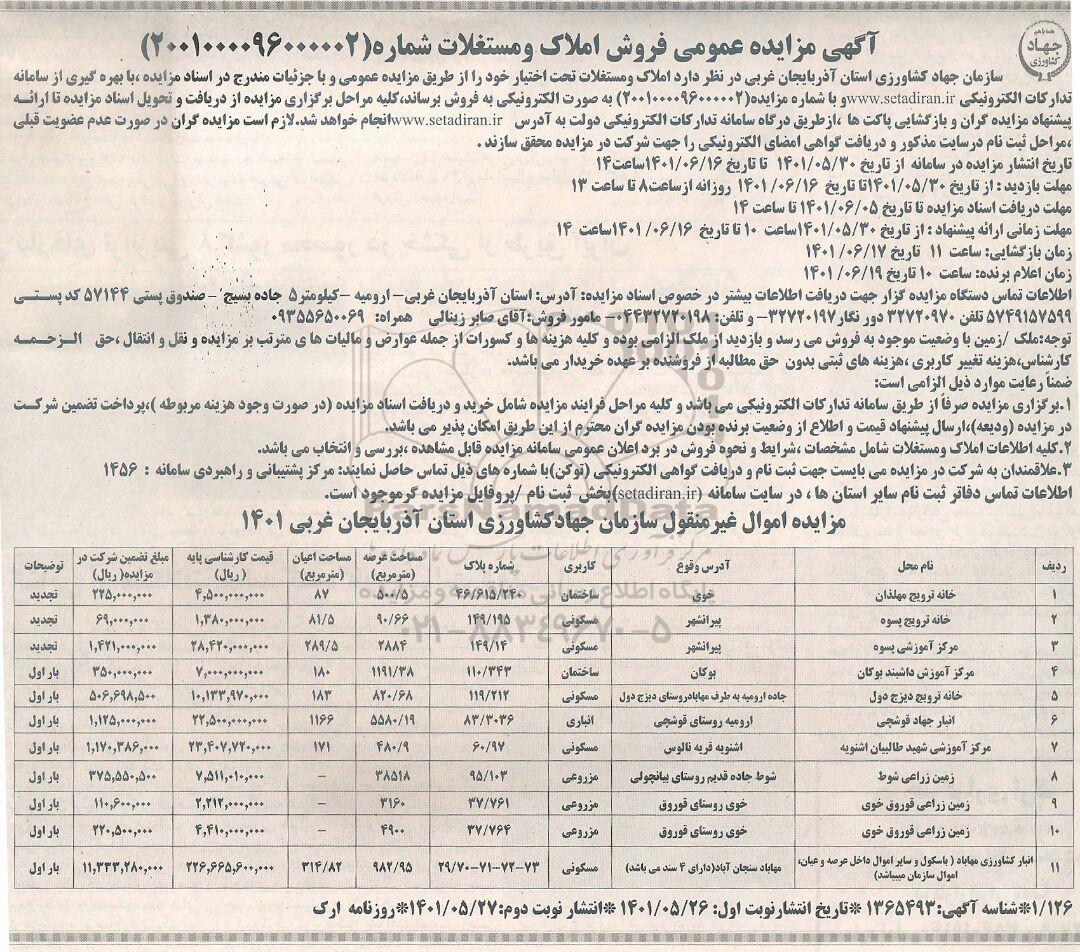 آگهی مزایده عمومی فروش املاک ومستغلات شماره(۲۰۰۱۰۰۰۰۹۶۰۰۰۰۰۲)
جهاد کشاورزی
سازمان جهاد کشاورزی استان آذربایجان غربی در نظر دارد املاک ومستغلات تحت اختیار خود را از طریق مزایده عمومی و با جزئیات مندرج در اسناد مزایده ،با بهره گیری از سامانه
تدارکات الکترونیکی www.setadiran.irو با شماره مزایده(۲۰۰۱۰۰۰۰۹۶۰۰۰۰۰۲) به صورت الکترونیکی به فروش برساند،کلیه مراحل برگزاری مزایده از دریافت و تحویل اسناد مزایده تا ارائه
پیشنهاد مزایده گران و بازگشایی پاکت ها ،ازطریق درگاه سامانه تدارکات الکترونیکی دولت به آدرس www.setadiran.irانجام خواهد شد.لازم است مزایده گران در صورت عدم عضویت قبلی
،مراحل ثبت نام درسایت مذکور و دریافت گواهی امضای الکترونیکی را جهت شرکت در مزایده محقق سازند .
تاریخ انتشار مزایده در سامانه از تاریخ ۱۴۰۱/۰۵/۳۰ تا تاریخ ۱۴۰۱/۰۶/۱۶ساعت۱۴
مهلت بازدید : از تاریخ ۱۴۰۱/۰۵/۳۰تا تاریخ ۱۴۰۱/۰۶/۱۶ روزانه ازساعت۸ تا ساعت ۱۳
مهلت دریافت اسناد مزایده تا تاریخ ۱۴۰۱/۰۶/۰۵ تا ساعت ۱۴
مهلت زمانی ارائه پیشنهاد : از تاریخ ۱۴۰۱/۰۵/۳۰ساعت ۱۰ تا تاریخ ۱۴۰۱/۰۶/۱۶ساعت ۱۴
زمان بازگشایی: ساعت ۱۱ تاریخ ۱۴۰۱/۰۶/۱۷
زمان اعلام برنده: ساعت ۱۰ تاریخ ۱۴۰۱/۰۶/۱۹
اطلاعات تماس دستگاه مزایده گزار جهت دریافت اطلاعات بیشتر در خصوص اسناد مزایده: آدرس: استان آذربایجان غربی– ارومیه –کیلومتر۵ جاده بسیج – صندوق پستی ۵۷۱۴۴ کد پستی
۵۷۴۹۱۵۷۵۹۹ تلفن ۳۲۷۲۰۹۷۰ دور نگار۳۲۷۲۰۱۹۷– و تلفن: ۰۴۴۳۲۷۲۰۱۹۸– مامور فروش:آقای صابر زینالی همراه: ۰۹۳۵۵۶۵۰۰۶۹
توجه:ملک /زمین با وضعیت موجود به فروش می رسد و بازدید از ملک الزامی بوده و کلیه هزینه ها و کسورات از جمله عوارض و مالیات ها ی مترتب بر مزایده و نقل و انتقال ،حق الزحمه
کارشناس،هزینه تغییر کاربری ،هزینه های ثبتی بدون حق مطالبه از فروشنده بر عهده خریدار می باشد.
ضمناً رعایت موارد ذیل الزامی است:
۱.برگزاری مزایده صرفاً از طریق سامانه تدارکات الکترونیکی می باشد و کلیه مراحل فرایند مزایده شامل خرید و دریافت اسناد مزایده (در صورت وجود هزینه مربوطه )،پرداخت تضمین شرکت
در مزایده (ودیعه)،ارسال پیشنهاد قیمت و اطلاع از وضعیت برنده بودن مزایده گران محترم از این طریق امکان پذیر می باشد.
۲.کلیه اطلاعات املاک ومستغلات شامل مشخصات ،شرایط و نحوه فروش در برد اعلان عمومی سامانه مزایده قابل مشاهده ،بررسی و انتخاب می باشد.
۳.علاقمندان به شرکت در مزایده می بایست جهت ثبت نام و دریافت گواهی الکترونیکی (توکن)با شماره های ذیل تماس حاصل نمایند: مرکز پشتیبانی و راهبردی سامانه : ۱۴۵۶
اطلاعات تماس دفاتر ثبت نام سایر استان ها ، در سایت سامانه (setadiran.ir)بخش ثبت نام /پروفایل مزایده گرموجود است.
مزایده اموال غیرمنقول سازمان جهادکشاورزی استان آذربایجان غربی ۱۴۰۱
ردیف نام محل آدرس وقوع کاربری شماره پلاک مساحت عرصه (مترمربع) مساحت اعیان (مترمربع) قیمت کارشناسی پایه ( ریال) مبلغ تضمین شرکت در مزایده( ریال) توضیحات
۱ خانه ترویج مهلذان خوی ساختمان ۴۶/۶۱۵/۲۴۰ ۵۰۰/۵ ۸۷ ۴,۵۰۰,۰۰۰,۰۰۰ ۲۲۵,۰۰۰,۰۰۰ تجدید
۲ خانه ترویج پسوه پیرانشهر مسکونی ۱۴۹/۱۹۵ ۹۰/۶۶ ۸۱/۵ ۱,۳۸۰,۰۰۰,۰۰۰ ۶۹,۰۰۰,۰۰۰ تجدید
۳ مرکز آموزشی پسوه پیرانشهر مسکونی ۱۴۹/۱۴ ۲۸۸۴ ۲۸۹/۵ ۲۸,۴۲۰,۰۰۰,۰۰۰ ۱,۴۲۱,۰۰۰,۰۰۰ تجدید
۴ مرکز آموزش داشبند بوکان بوکان ساختمان ۱۱۰/۳۴۳ ۱۱۹۱/۳۸ ۱۸۰ ۷,۰۰۰,۰۰۰,۰۰۰ ۳۵۰,۰۰۰,۰۰۰ بار اول
۵ خانه ترویج دیزج دول جاده ارومیه به طرف مهابادروستای دیزج دول مسکونی ۱۱۹/۲۱۲ ۸۲۰/۶۸ ۱۸۳ ۱۰,۱۳۳,۹۷۰,۰۰۰ ۵۰۶,۶۹۸,۵۰۰ بار اول
۶ انبار جهاد قوشچی ارومیه روستای قوشچی انباری ۸۳/۳۰۳۶ ۵۵۸۰/۱۹ ۱۱۶۶ ۲۲,۵۰۰,۰۰۰,۰۰۰ ۱,۱۲۵,۰۰۰,۰۰۰ بار اول
۷ مرکز آموزشی شهید طالبیان اشنویه اشنویه قریه نالوس مسکونی ۶۰/۹۷ ۴۸۰/۹ ۱۷۱ ۲۳,۴۰۷,۷۲۰,۰۰۰ ۱,۱۷۰,۳۸۶,۰۰۰ بار اول
۸ زمین زراعی شوط شوط جاده قدیم روستای بیانچولی مزروعی ۹۵/۱۰۳ ۳۸۵۱۸ – ۷,۵۱۱,۰۱۰,۰۰۰ ۳۷۵,۵۵۰,۵۰۰ بار اول
۹ زمین زراعی قوروق خوی خوی روستای قوروق مزروعی ۳۷/۷۶۱ ۳۱۶۰ – ۲,۲۱۲,۰۰۰,۰۰۰ ۱۱۰,۶۰۰,۰۰۰ بار اول
۱۰ زمین زراعی قوروق خوی خوی روستای قوروق مزروعی ۳۷/۷۶۴ ۴۹۰۰ – ۴,۴۱۰,۰۰۰,۰۰۰ ۲۲۰,۵۰۰,۰۰۰ بار اول
۱۱ انبار کشاورزی مهاباد ( باسکول و سایر اموال داخل عرصه و عیان، اموال سازمان میباشد) مهاباد سنجان آباد(دارای ۴ سند می باشد) مسکونی ۲۹/۷۰-۷۱-۷۲-۷۳ ۹۸۲/۹۵ ۳۱۴/۸۲ ۲۲۶,۶۶۵,۶۰۰,۰۰۰ ۱۱,۳۳۳,۲۸۰,۰۰۰ بار اول
۱/۱۲۶*شناسه آگهی:۱۳۶۵۴۹۳ *تاریخ انتشارنوبت اول: ۱۴۰۱/۰۵/۲۶ *انتشار نوبت دوم:۱۴۰۱/۰۵/۲۷*روزنامه ارک
ParsNamadData
۰۲۱-۸۸۳۴۹۶۷۰-۵